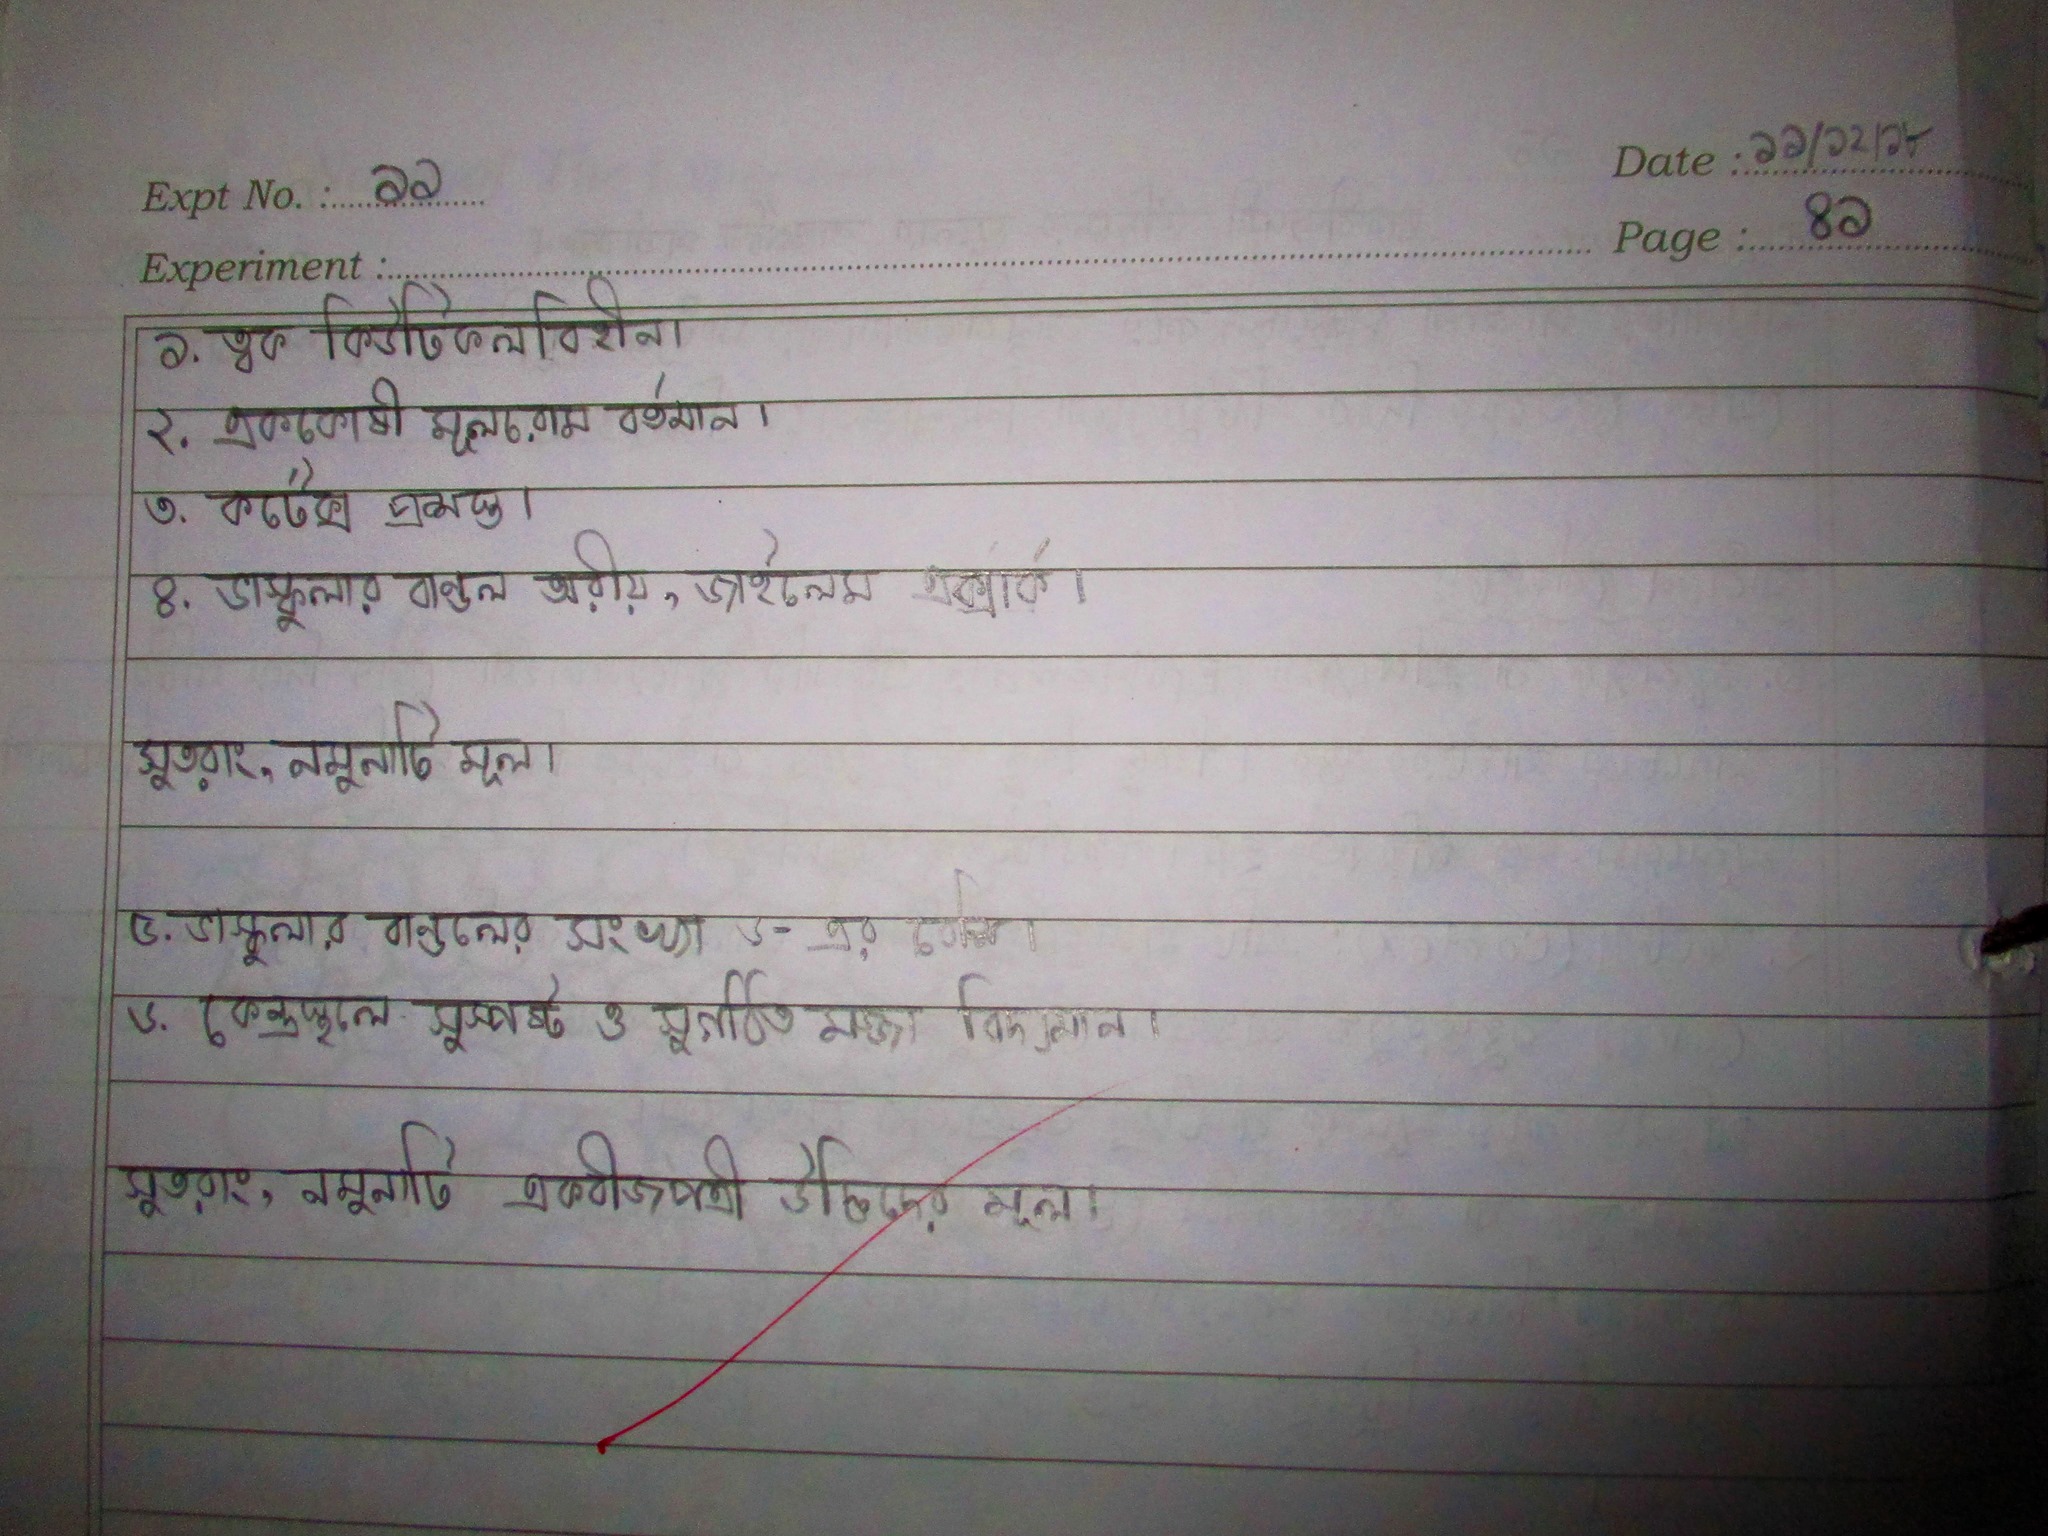 Expt No. : ১১
Date : ১১/১২/১৮
Experiment :
Page : ৪১
১. ত্বক কিউটিকলবিহীন।
২. এককোষী মূলরোম বর্তমান।
৩. কর্টেক্স প্রশস্ত।
৪. ভাস্কুলার বান্ডল অরীয়, জাইলেম এক্সার্ক।
সুতরাং, নমুনাটি মূল।
৫. ভাস্কুলার বান্ডলের সংখ্যা ৬- এর বেশি।
৬. কেন্দ্রস্থলে সুস্পষ্ট ও সুগঠিত মজ্জা বিদ্যমান।
সুতরাং, নমুনাটি একবীজপত্রী উদ্ভিদের মূল।